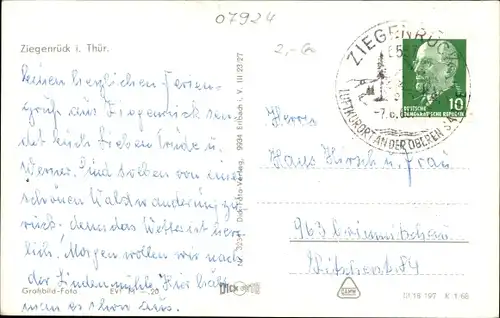 07924
Ziegenrück i. Thür.
2,-
einen herzlichen Ferien-
gruß aus Ziegenrück sen-
det Euch Lieben Trude u.
Werner. Sind soeben von einer
schönen Waldwanderung zu-
rück, denn das Wetter ist herr-
lich! Morgen wollen wir nach
der Lindenmühle. Hier hält
man es schon aus.
Großbild-Foto EVP M -.20
Dick-Foto-Verlag, 9934 Erlbach i. V. III 23-27
ZIEGENRÜCK
LUFTKURORT AN DER OBEREN SAALE
-7.6.
DEUTSCHE
DEMOKRATISCHE REPUBLIK
10
Herrn
Hans Hirsch u. Frau
963 Crimmitschau
84
DICK
III 18 197 K 1/68